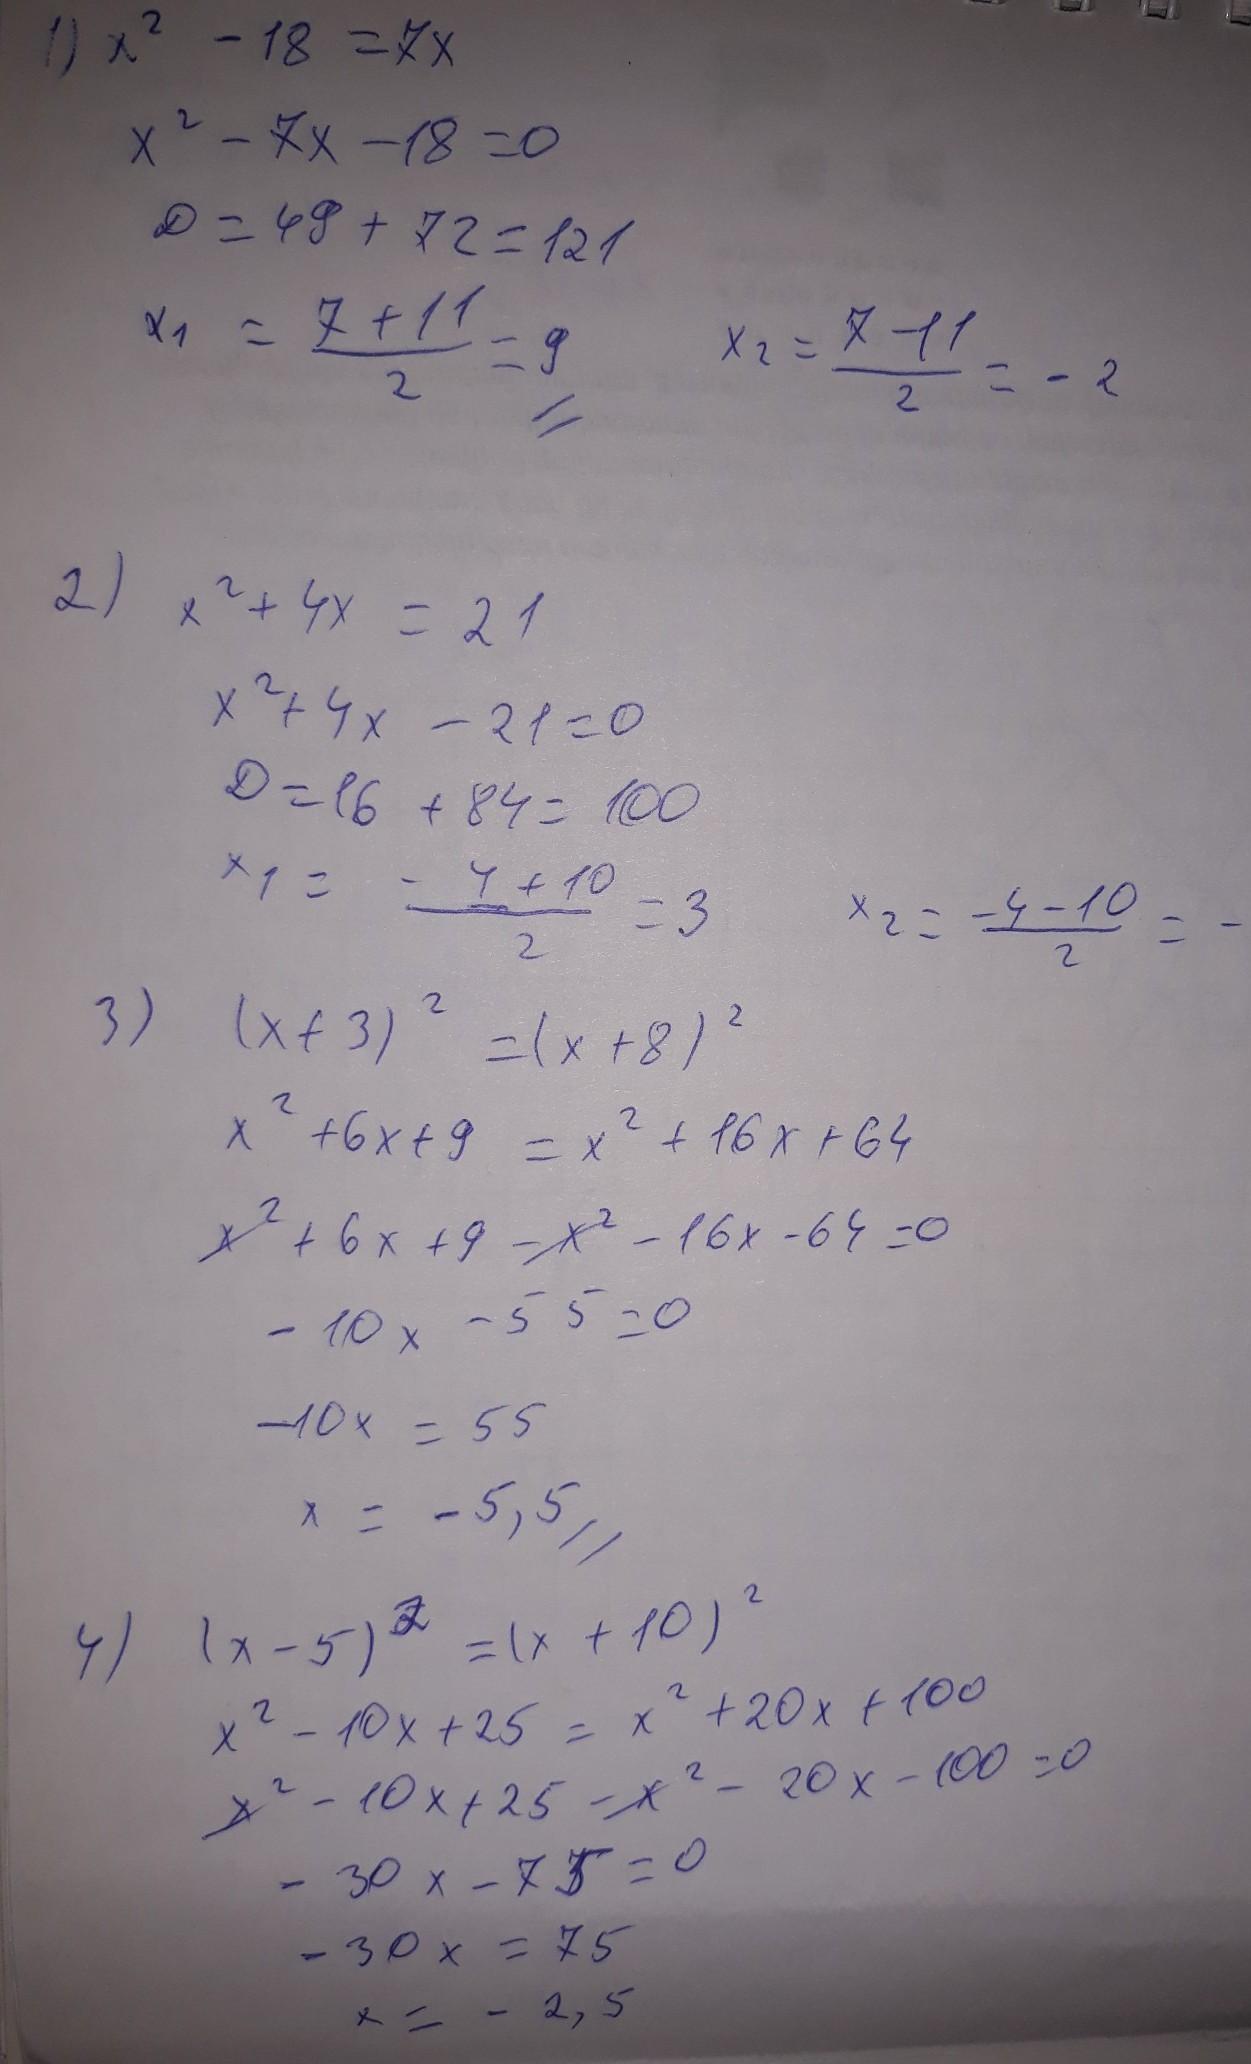 1) x² - 18 = 7x
x² - 7x - 18 = 0
D = 49 + 72 = 121
x₁ = (7 + 11)/2 = 9    x₂ = (7 - 11)/2 = - 2
2) x² + 4x = 21
x² + 4x - 21 = 0
D = 16 + 84 = 100
x₁ = (- 4 + 10)/2 = 3    x₂ = (-4 - 10)/2 = -
3) (x + 3)² = (x + 8)²
x² + 6x + 9 = x² + 16x + 64
x² + 6x + 9 - x² - 16x - 64 = 0
- 10x - 55 = 0
-10x = 55
x = - 5,5
4) (x - 5)² = (x + 10)²
x² - 10x + 25 = x² + 20x + 100
x² - 10x + 25 - x² - 20x - 100 = 0
- 30x - 75 = 0
- 30x = 75
x = - 2,5